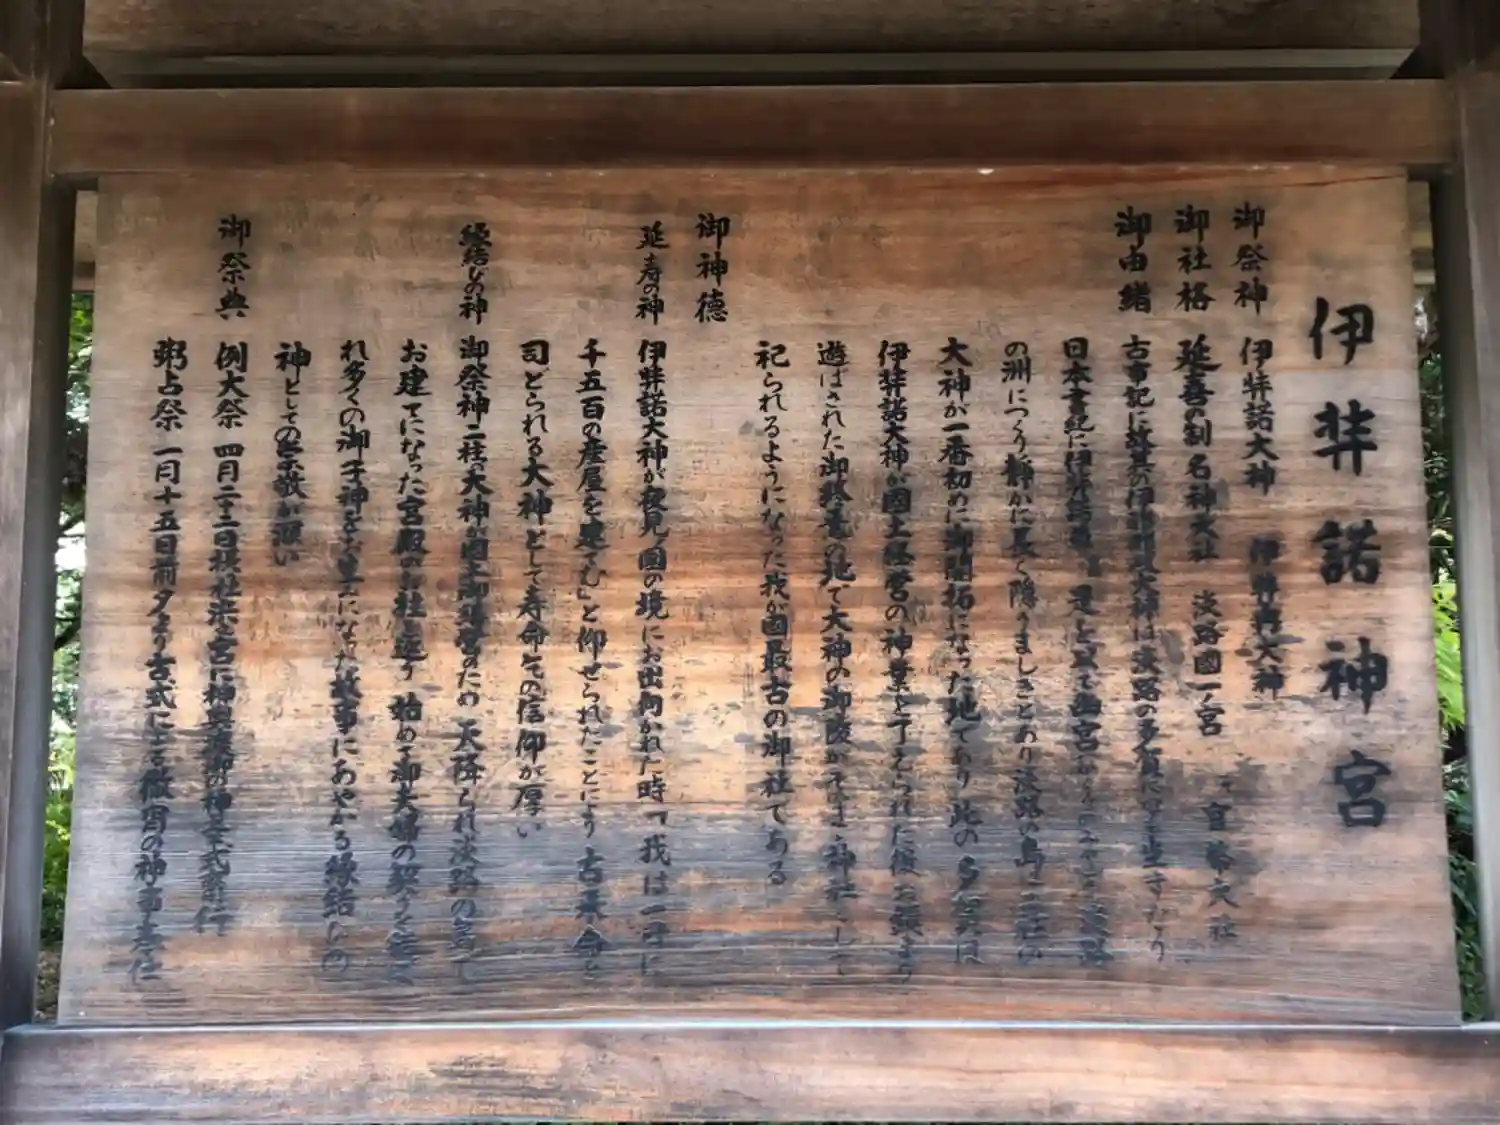 伊弉諾神宮
御祭神 伊弉諾大神 伊弉冉大神
御社格 延喜の制名神大社 淡路國一ノ宮 官幣大社
御由緒 古事記に故其の伊弉諾大神は淡路の多賀に坐すなり
日本書紀に伊弉諾尊 是を以て幽宮を
の洲につくり静かに長く隠りましきとあり淡路の島に
大神が一番初めに御開拓になった地であり此の多賀は
伊弉諾大神が國土経営の神業を了えられた後お鎮まり
遊ばされた御終焉の地で大神の御陵がそのまゝ神社として
祀られるようになった我が國最古の御社である
御神徳
延寿の神 伊弉諾大神が夜見國の境にお出向かれた時「我は一日に
千五百の産屋を建てむ」と仰せられたことにより古来命を
司どられる大神として寿命とその信仰が厚い
縁結びの神 御祭神二柱の大神が國土御経営のため天降られ淡路の島で
お建てになった宮殿のお柱を廻り始めて御夫婦の契りを結ば
れ多くの御子神をお生みになった故事にあやかる縁結びの
神としての崇敬が深い
御祭典 例大祭 四月二十二日 神輿渡御の神幸式斎行
粥占祭 一月十五日前夕より古式による 神事奉仕